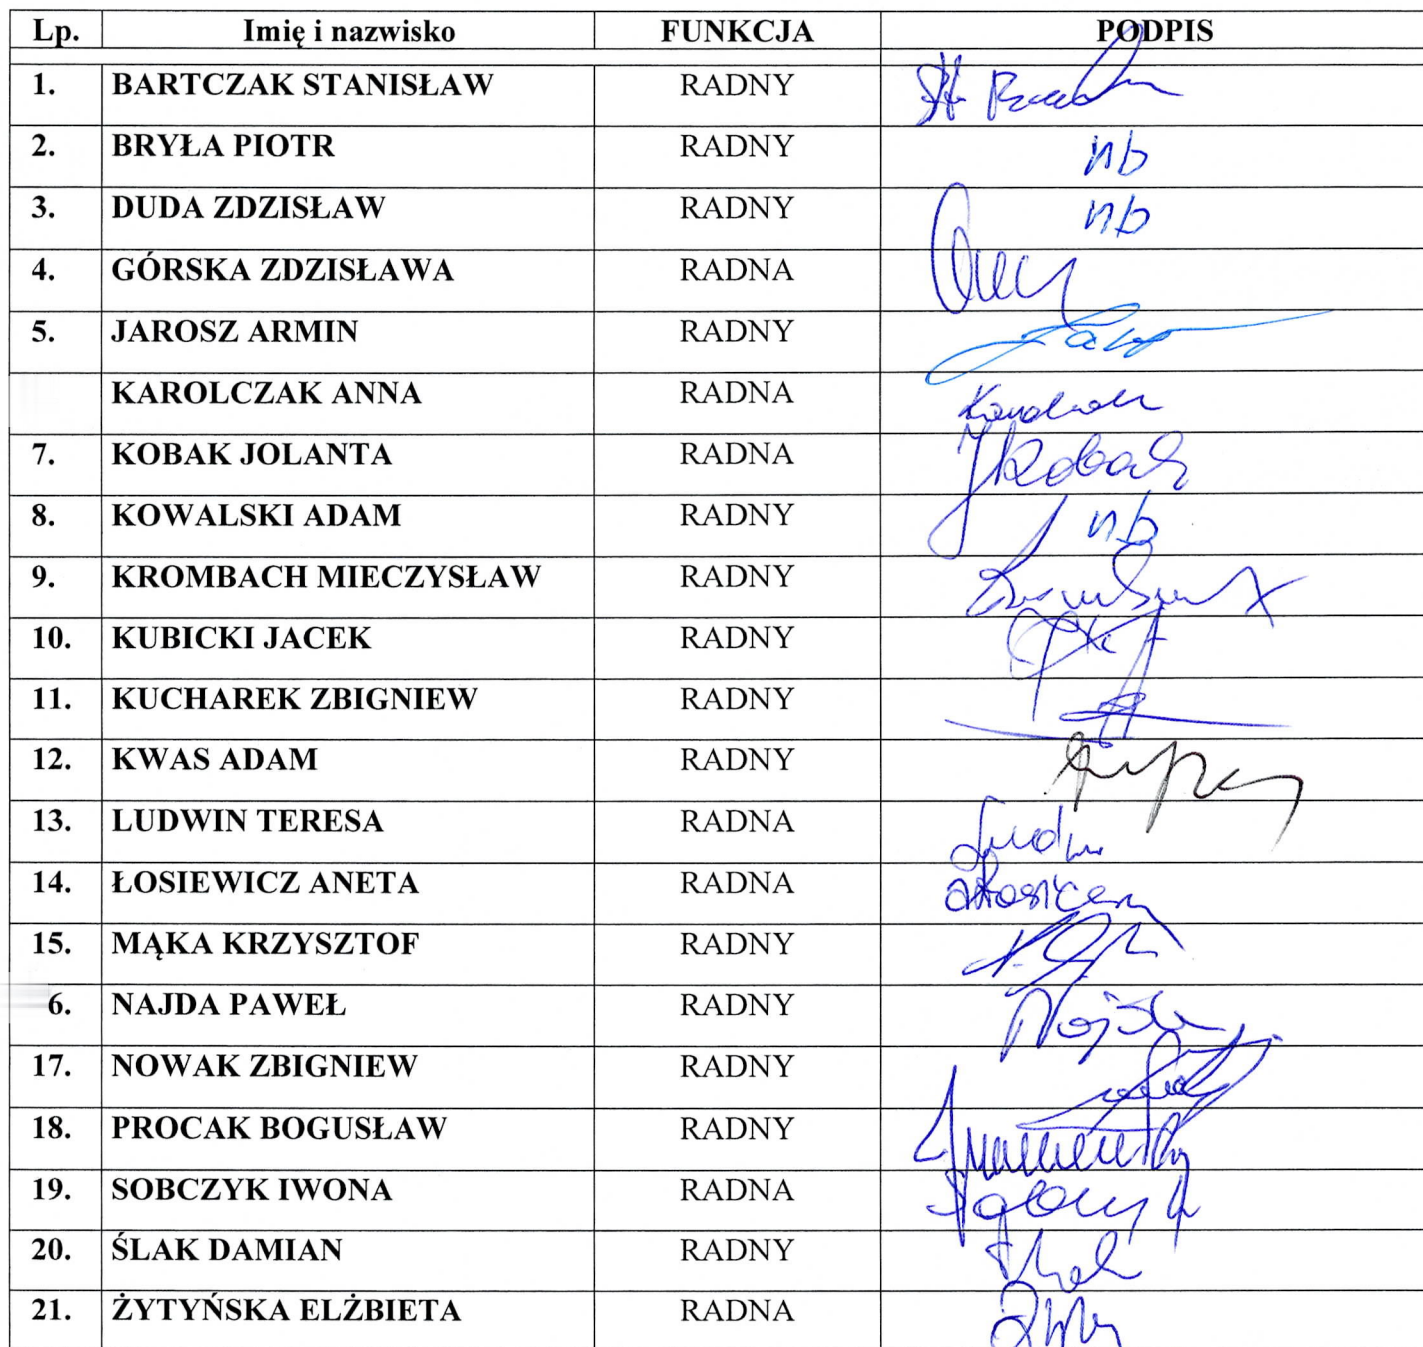 Lp. Imię i nazwisko FUNKCJA PODPIS
1. BARTCZAK STANISŁAW RADNY
2. BRYŁA PIOTR RADNY nb
3. DUDA ZDZISŁAW RADNY nb
4. GÓRSKA ZDZISŁAWA RADNA
5. JAROSZ ARMIN RADNY
KAROLCZAK ANNA RADNA
7. KOBAK JOLANTA RADNA JKobak
8. KOWALSKI ADAM RADNY nb
9. KROMBACH MIECZYSŁAW RADNY
10. KUBICKI JACEK RADNY
11. KUCHAREK ZBIGNIEW RADNY
12. KWAS ADAM RADNY
13. LUDWIN TERESA RADNA
14. ŁOSIEWICZ ANETA RADNA
15. MĄKA KRZYSZTOF RADNY
6. NAJDA PAWEŁ RADNY
17. NOWAK ZBIGNIEW RADNY
18. PROCAK BOGUSŁAW RADNY
19. SOBCZYK IWONA RADNA
20. ŚLAK DAMIAN RADNY
21. ŻYTYŃSKA ELŻBIETA RADNA